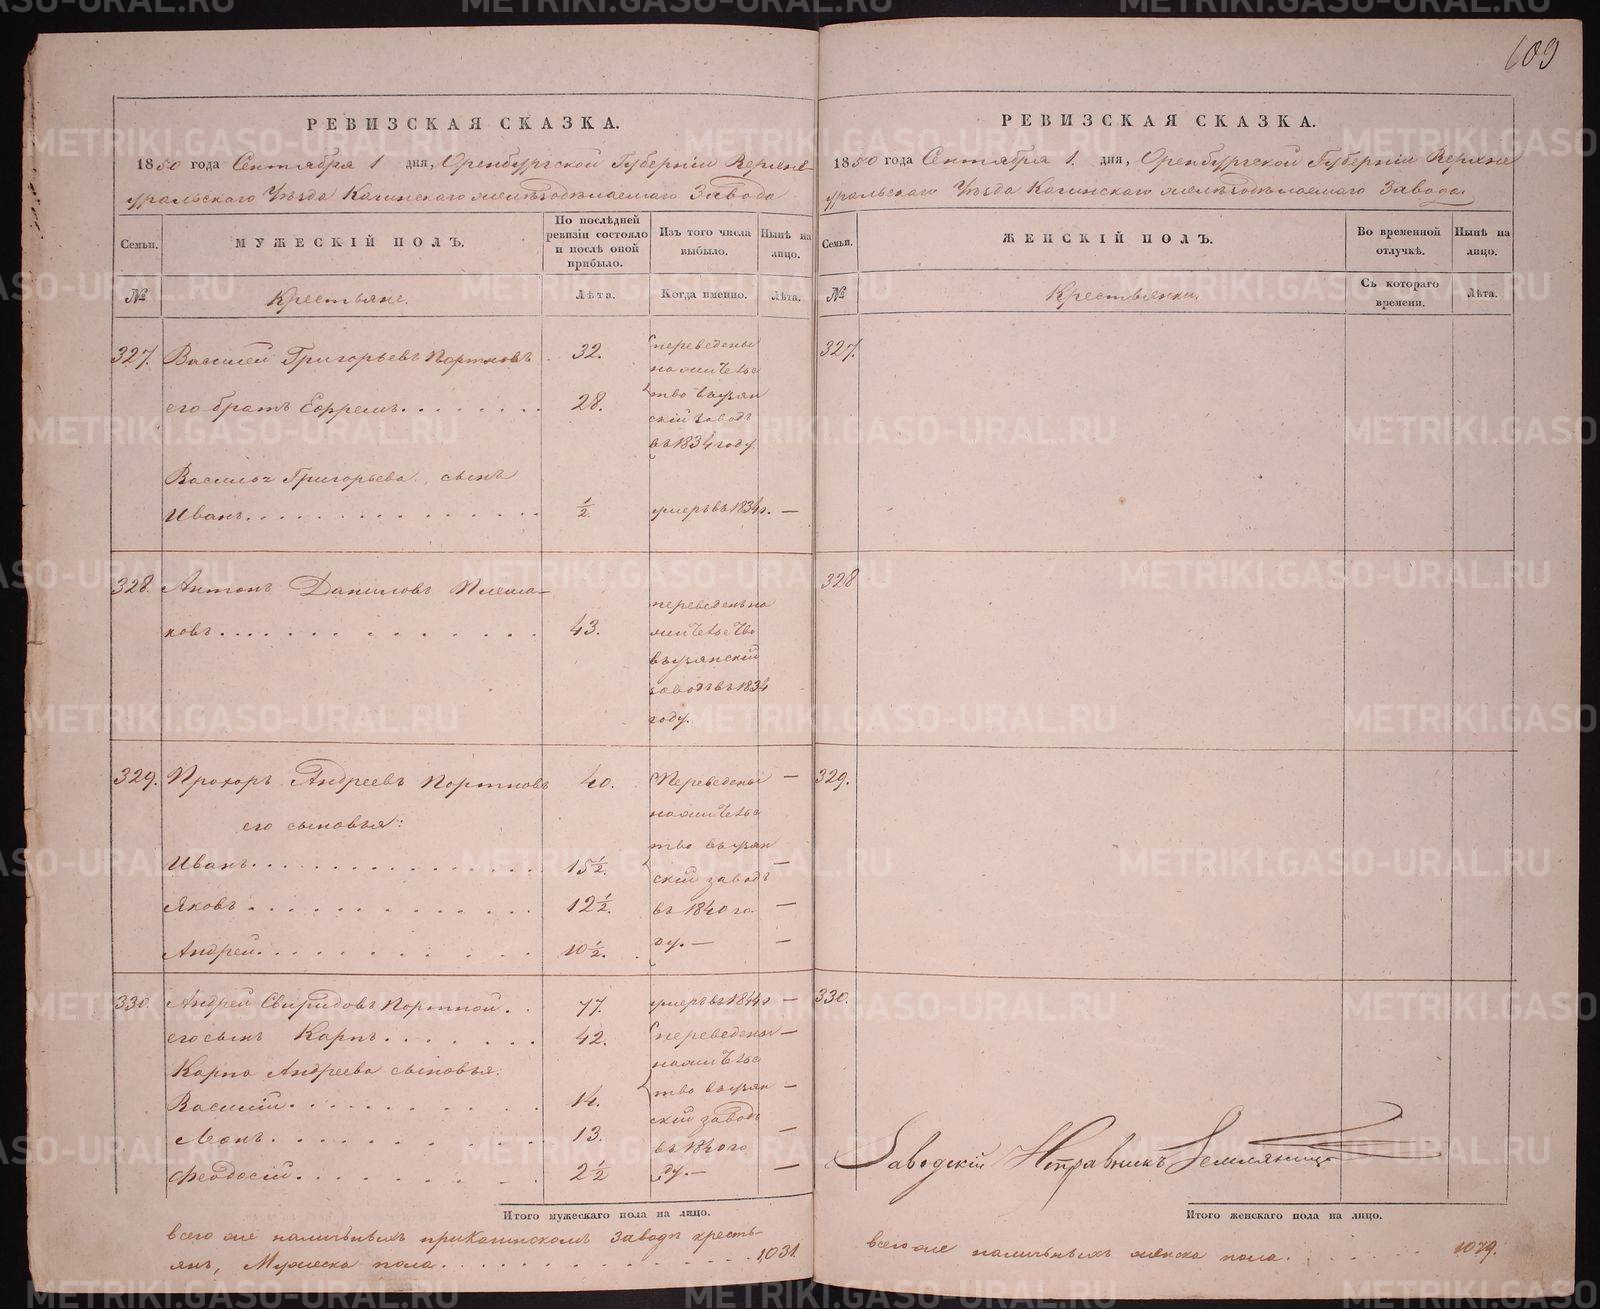 609
РЕВИЗСКАЯ СКАЗКА.
1850 года Сентября 1 дня, Оренбургской Губерніи Верхне
уральскаго Уѣзда Кагинскаго желѣзодѣлаемаго Завода
Семьи.
МУЖЕСКІЙ ПОЛЪ.
По послѣдней
ревизіи состояло
и послѣ оной
прибыло.
Изъ того числа
выбыло.
Нынѣ на
лицо.
№
Крестьяне.
Лѣта.
Когда именно.
Лѣта.
327. Василей Григорьевъ Портновъ 32. переведены
на жительс
его братъ Ефремъ 28. тво въ узян
скій заводъ
въ 1834 году
Василья Григорьева сынъ
Иванъ ½ умеръ въ 1834 г. —
328. Антонъ Даниловъ Плеша-
ковъ 43. переведенъ на
жительство
въ узянскій
заводъ въ 1834
году.
329. Прохоръ Андреевъ Портновъ 40. Переведены —
на жительс
его сыновья:
тво въ узян
Иванъ 15½. скій заводъ —
Яковъ 12½. въ 1840 го —
Андрей 10½. ду. — —
330. Андрей Свиридовъ Портной 77. умеръ въ 1844 г —
его сынъ Карпъ 42. переведены —
на жительс
Карпа Андреева сыновья:
Василій 14. тво въ узян —
скій заводъ
Леонъ 13. въ 1840 го —
Феодосій 2½ ду. — —
Итого мужескаго пола на лицо.
всего же наличныхъ при Кагинскомъ Заводѣ кресть-
янъ, Мужеска пола 1031.
РЕВИЗСКАЯ СКАЗКА.
1850 года Сентября 1. дня, Оренбургской Губерніи Верхне
уральскаго Уѣзда Кагинскаго желѣзодѣлаемаго Завода.
Семьи.
ЖЕНСКІЙ ПОЛЪ.
Во временной
отлучкѣ.
Нынѣ на
лицо.
№
Крестьянки.
Съ котораго
времени.
Лѣта.
327.
328
329.
330.
Заводскій Исправникъ
Итого женскаго пола на лицо.
всего же наличныхъ женска пола 1079.
METRIKI.GASO-URAL.RU